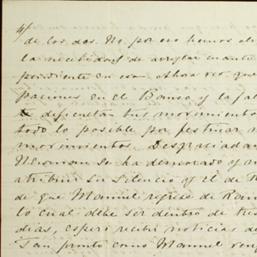 4/
de los dos. No por eso hemos
la necesidad de arreglar cuanto
pendiente en esa. Ahora veo que
en el Banco y la fal
tus movimientos
todo lo posible por festinar
movimientos. Desgraciadam
se ha demorado y
atribuir su silencio y el de
de que Manuel regrese de
lo cual debe ser dentro de tres
dias, espero recibir noticias de
Tan pronto como Manuel ven